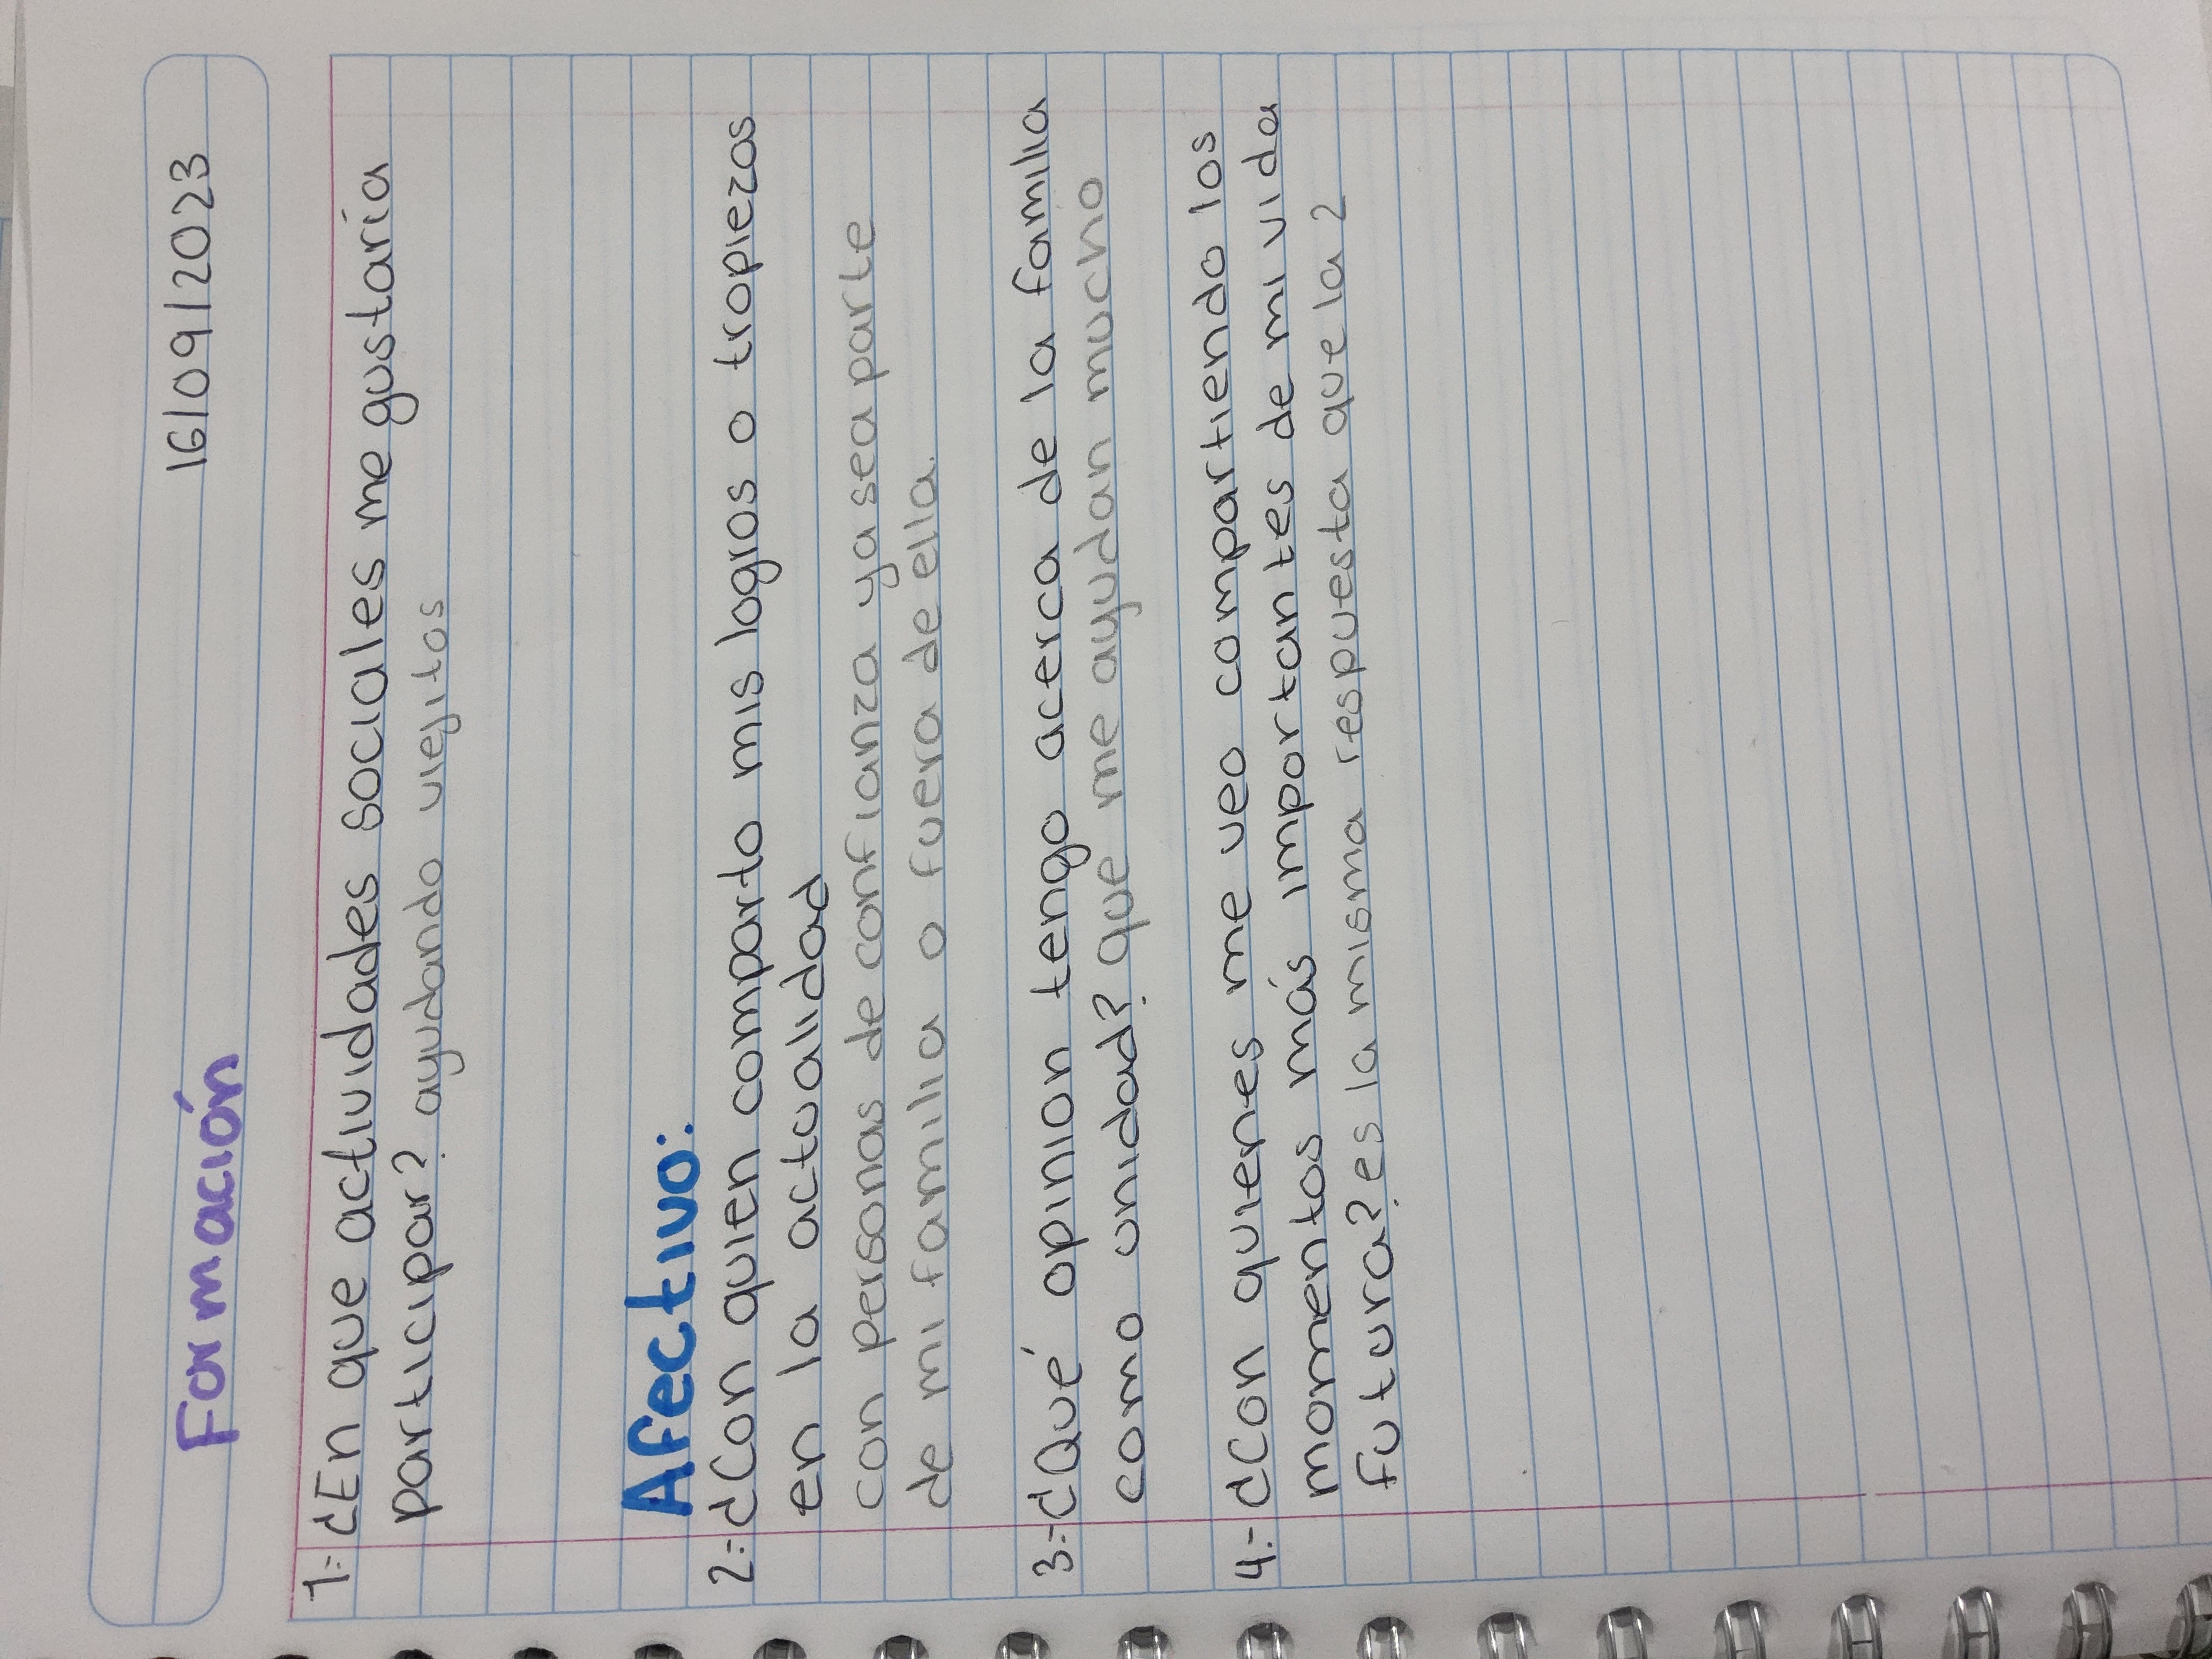 Formación 16/09/2023
1.- ¿En que actividades sociales me gustaría
participar? ayudando viejitos
Afectivo:
2.- ¿Con quien comparto mis logros o tropiezos
en la actualidad
con personas de confianza ya sea parte
de mi familia o fuera de ella.
3.- ¿Qué opinion tengo acerca de la familia
como unidad? que me ayudan mucho
4.- ¿Con quienes me veo compartiendo los
momentos más importantes de mi vida
futura? es la misma respuesta que la 2